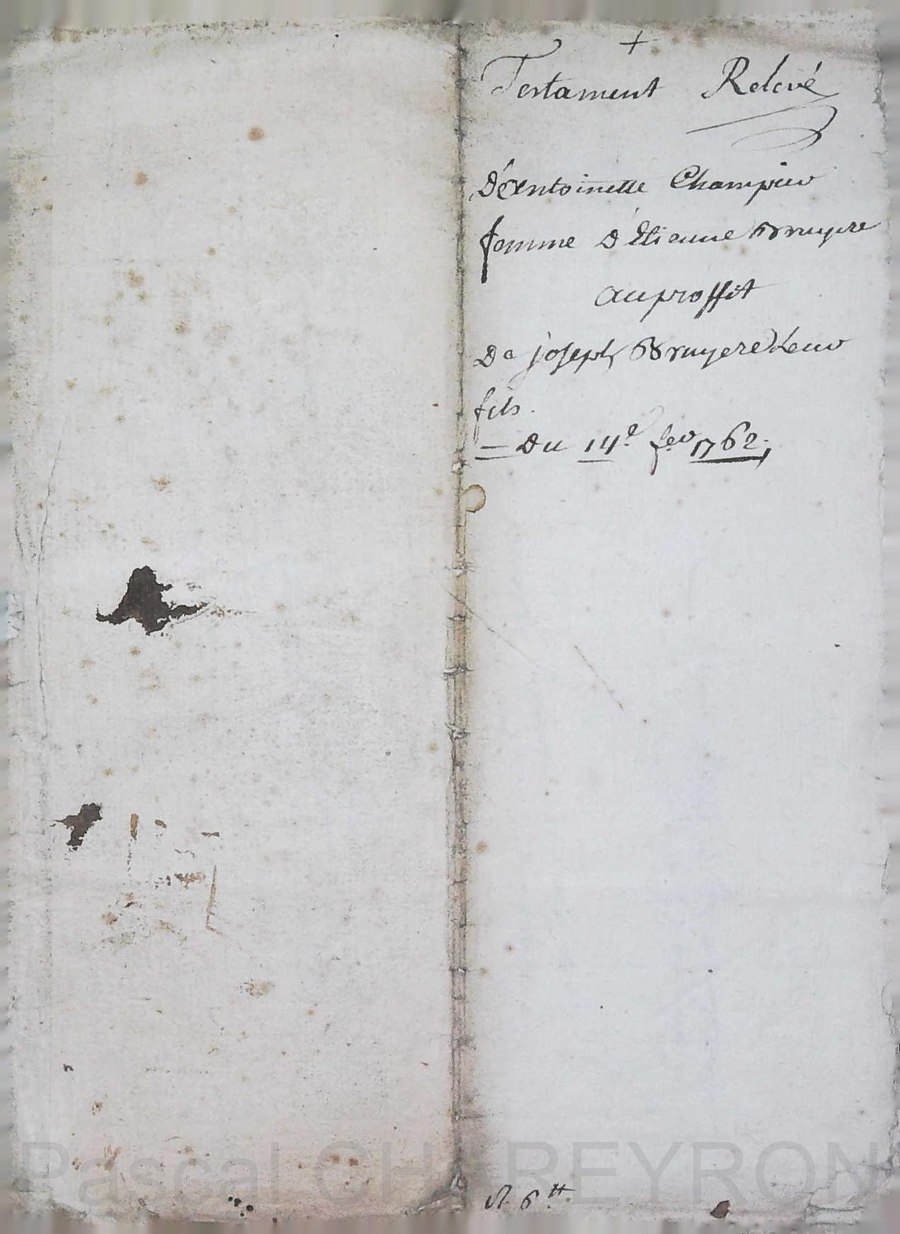 +
Testament Relevé
D'Antoinette Champier
femme d'Etienne Bruyere
au proffit
De joseph Bruyere Leur
fils.
— Du 14e fev 1762,
6 ℔
Pascal CHAPEYRON